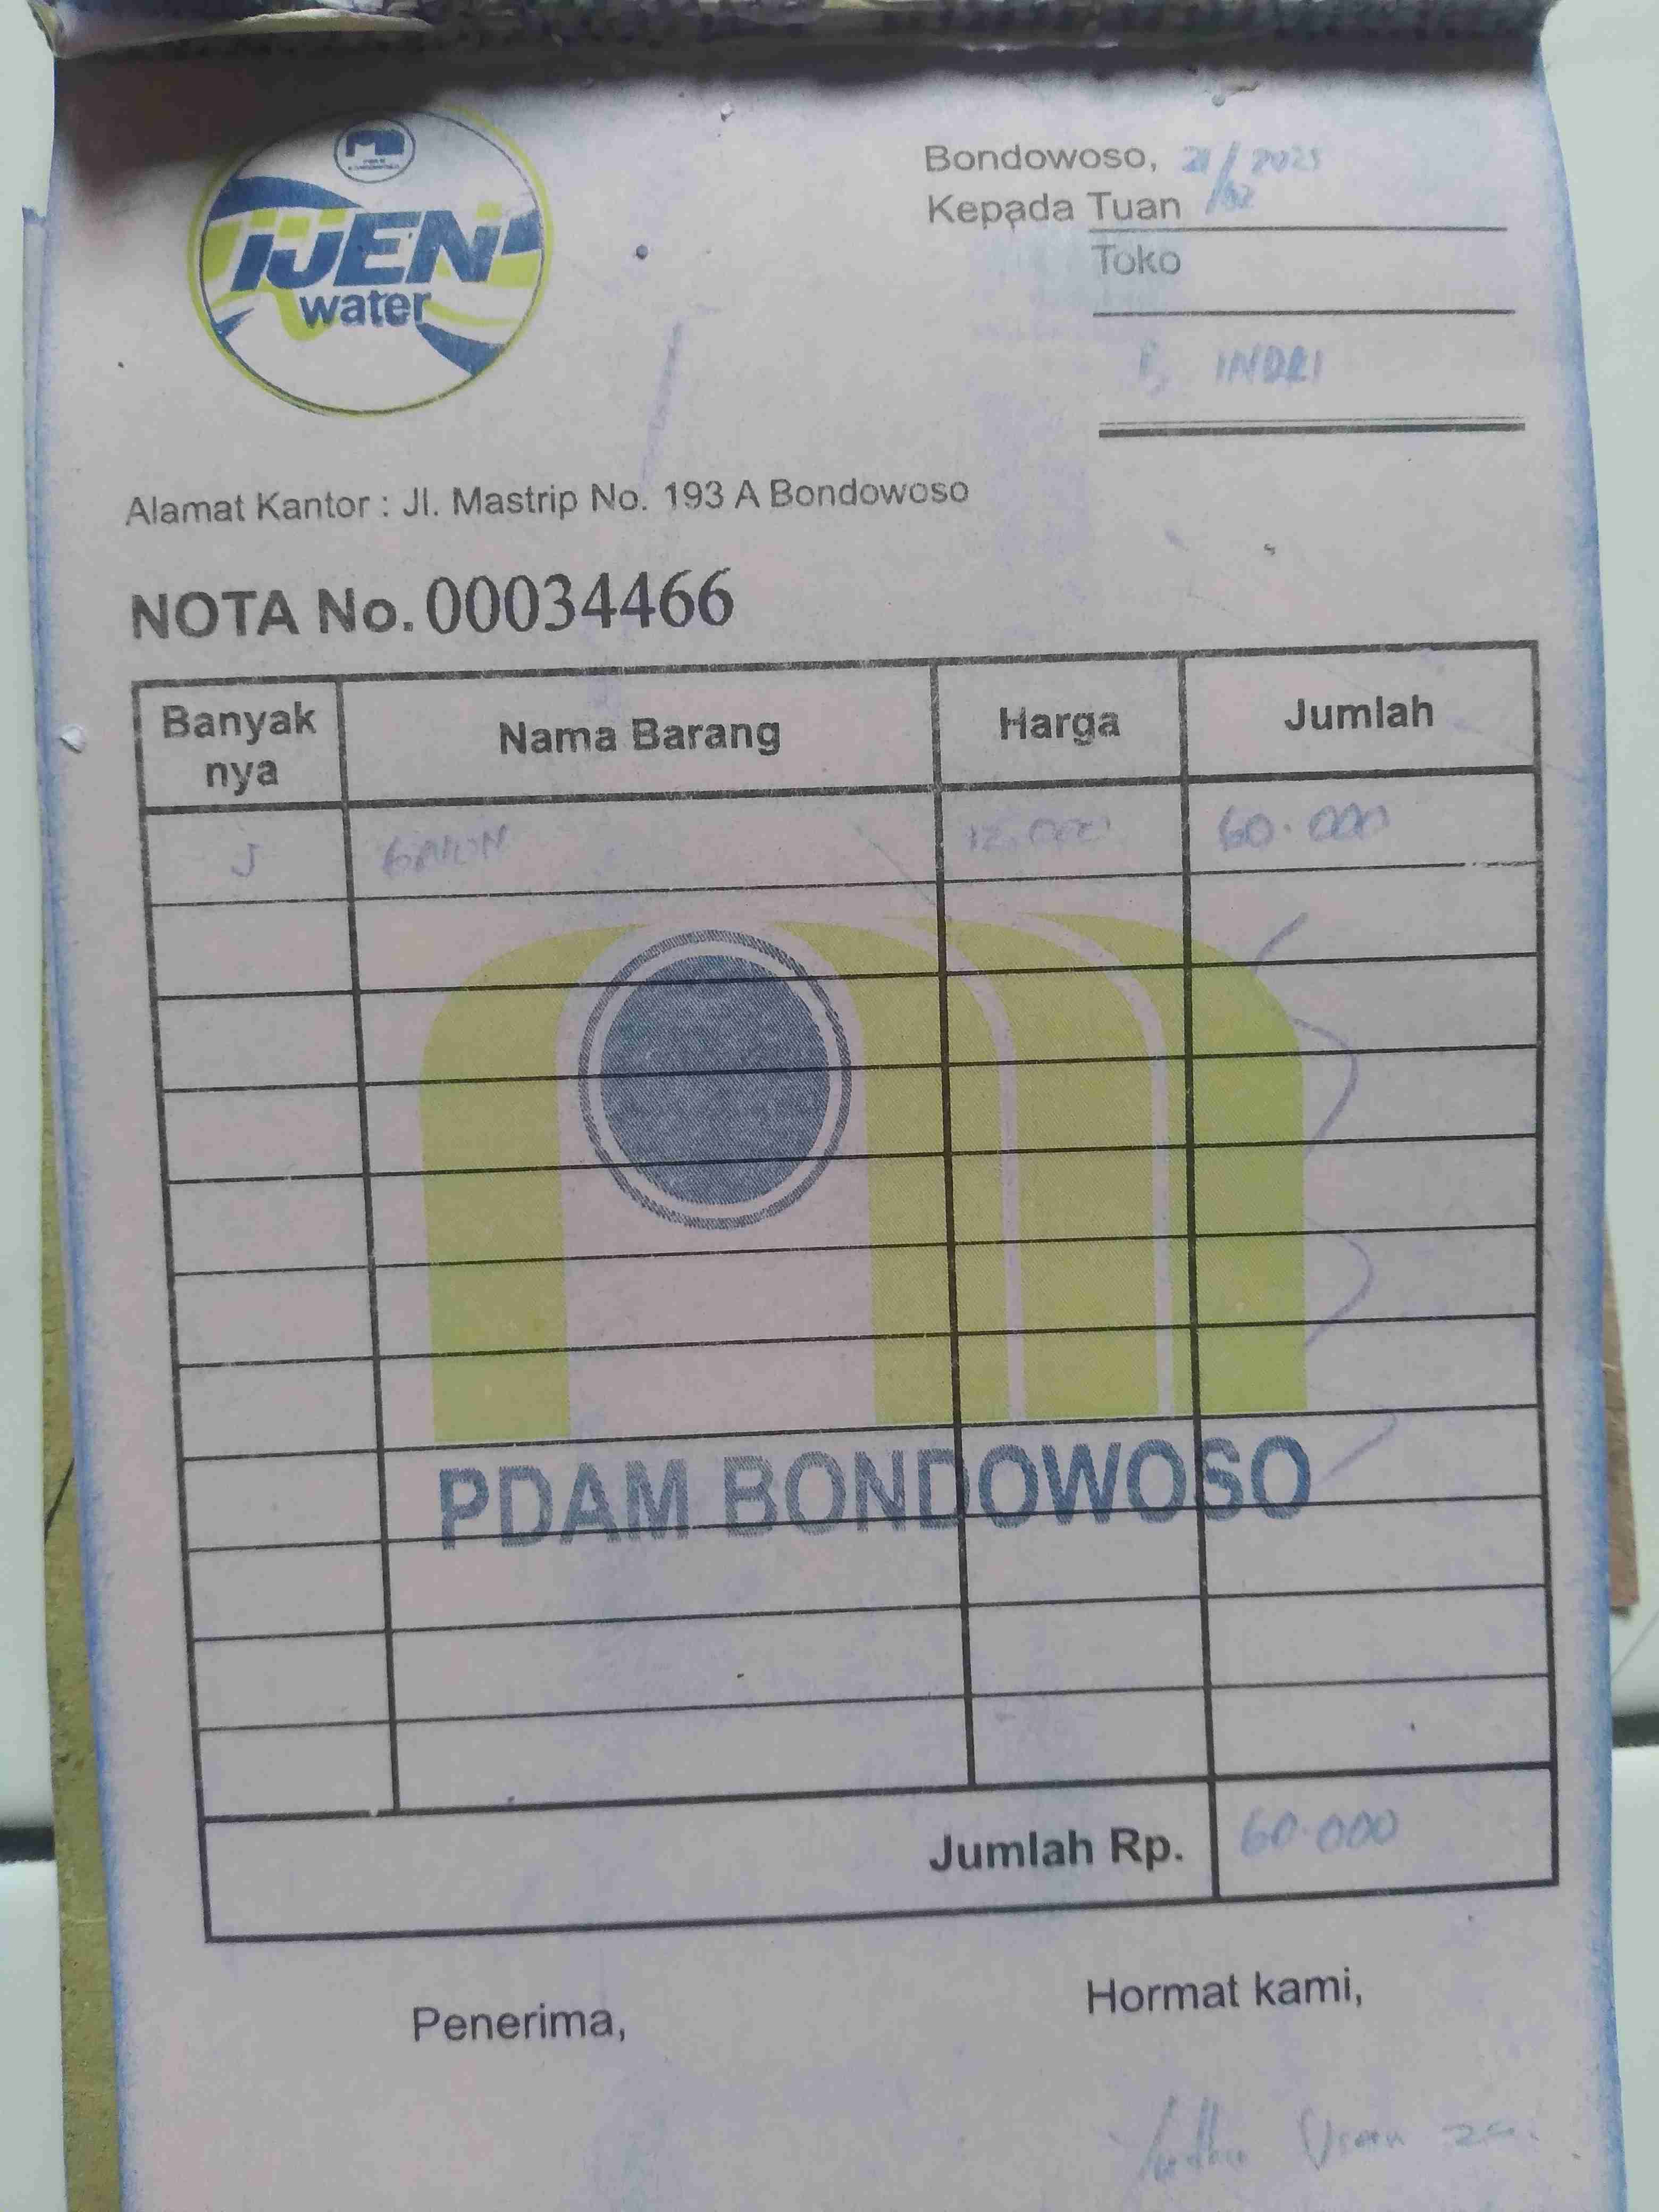 IJEN
water
Bondowoso, 21/02 2025
Kepada Tuan
Toko
INDRI
Alamat Kantor : Jl. Mastrip No. 193 A Bondowoso
NOTA No. 00034466
Banyak nya Nama Barang Harga Jumlah
5 GALON 12.000 60.000
PDAM BONDOWOSO
Jumlah Rp. 60.000
Penerima, Hormat kami,